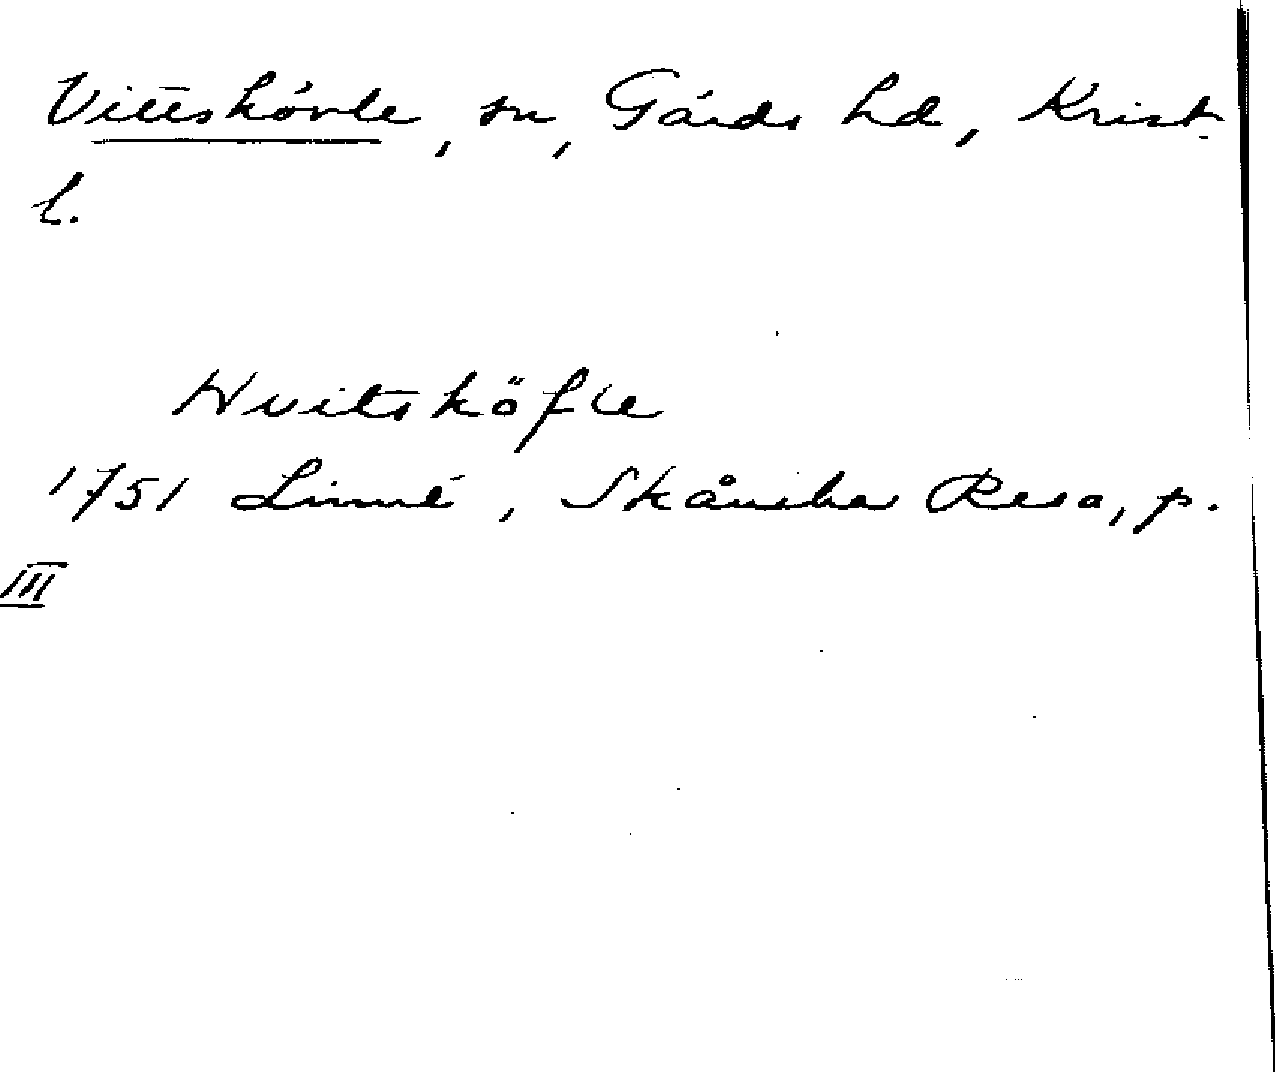 Vittskövle, sn, Gärds hd, Krist.
l.
Hvitsköfle
1751 Linné, Skånska Resa, p.
III